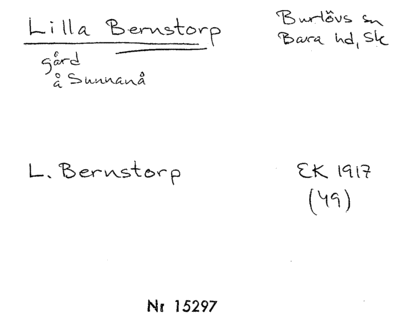 Lilla Bernstorp
Burlövs sn
Bara hd, Sk
gård
å Sunnanå
L. Bernstorp
EK 1917
(49)
Nr 15297